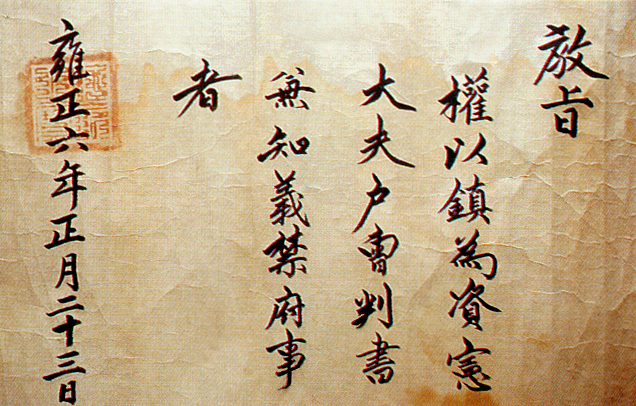 教旨
權以鎮為資憲
大夫戶曺判書
兼知義禁府事
者
雍正六年正月二十三日